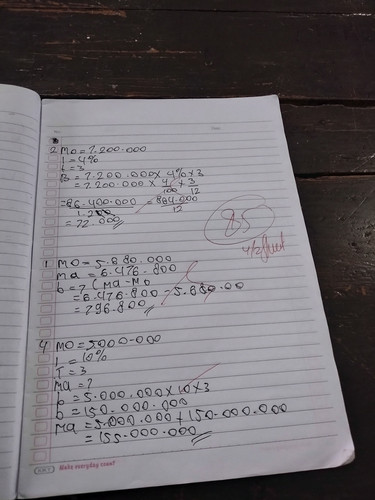 2 Mo = 7.200.000
i = 4%
t = 3
B = 7.200.000 x 4% x 3
= 7.200.000 x 4/100 x 3/12
= 86.400.000 = 864.000
1.200 12
= 72.000
85
1 MO = 5.880.000
Ma = 6.476.800
b = ? (Ma - Mo
= 6.476.800 - 5.880.00
= 796.800
4 MO = 5000.000
I = 10%
T = 3
Ma = ?
b = 5.000.000 x 10 x 3
b = 150.000.000
Ma = 5.000.000 + 150.000.000
= 155.000.000
Make everyday count!